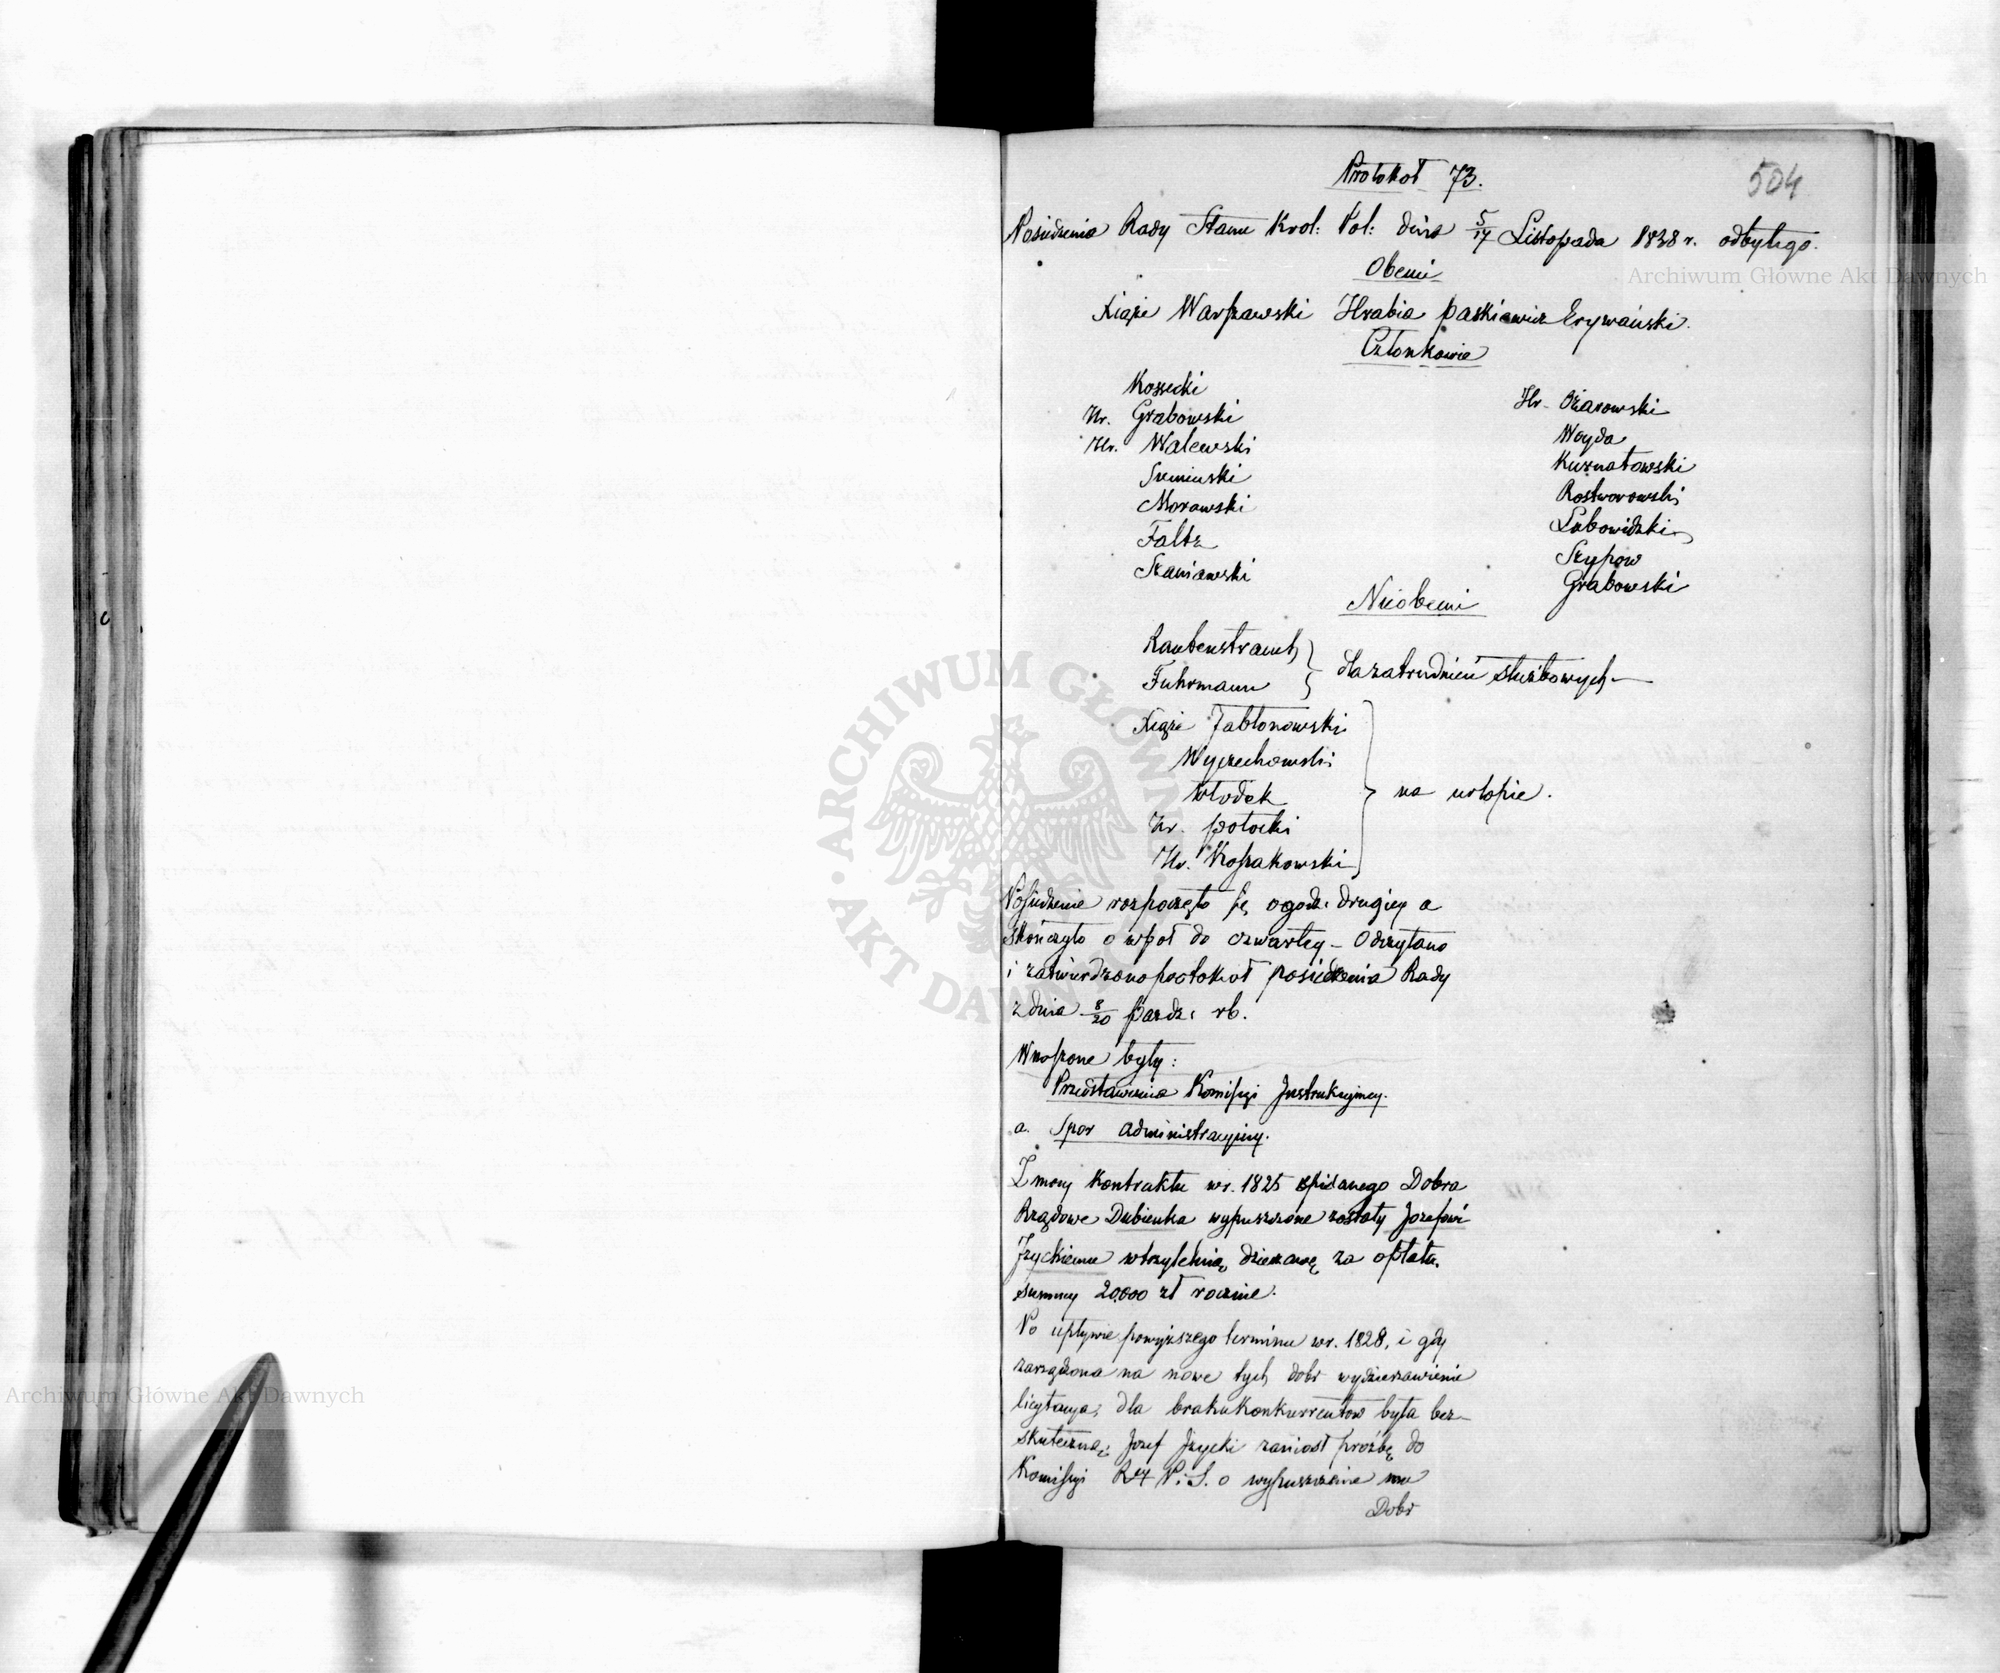 Protokoł 73.
504
Posiedzenia Rady Stanu Krol: Pol: dnia 5/17 Listopada 1838 r. odbytego.
Obecni
Xiąże Warszawski Hrabia Paskiewicz Erywański.
Członkowie
Kossecki
Hr. Grabowski
Hr. Walewski
Morawski
Faltz
Szaniawski
Hr. Ożarowski
Woyda
Kuznatowski
Rostworowski
Lubowidzki
Szypow
Grabowski
Nieobecni
Rautenstrauch
Fuhrmann
dla zatrudnień służbowych
Xiąże Jabłonowski
Wyczechowski
Włodek
Hr. Potocki
Hr. Kossakowski
na urlopie.
Posiedzenie rozpoczęto się o godz: drugiey a
skończyło o wpoł do czwartey – Odczytano
i zatwierdzono protokoł posiedzenia Rady
z dnia 8/20 Pazdz: rb.
Wnoszone były:
Przedstawienia Komisyi Instrukcyiney.
a. Spor administracyjny.
Z mocy kontraktu w r. 1825 spisanego Dobra
Rządowe Dubienka wypuszczone zostały Jozefowi
Jzyckiemu w trzyletnią dzierzawę za opłatą
summy 20,000 zł rocznie.
Po upływie powyższego terminu w r. 1828, i gdy
zarządzona na nowe tych dobr wydzierzawienie
licytacya, dla braku konkurrentow była bez–
skuteczną; Jozef Jzycki zaniosł prośbę do
Komisyi R. P. i S. o wypuszczenie mu
Dobr
Archiwum Główne Akt Dawnych
Archiwum Główne Akt Dawnych